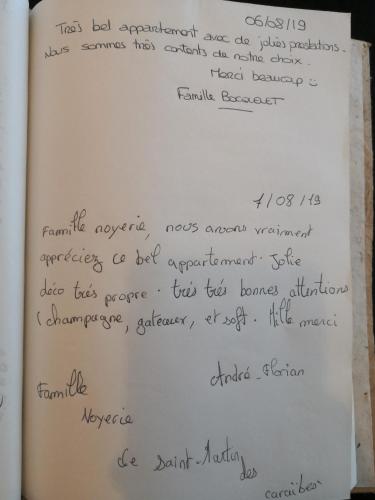 06/08/19
Très bel appartement avec de jolies prestations.
Nous sommes très contents de notre choix.
Merci beaucoup
Famille BOCQUET
7/08/19
Famille noyerie, nous avons vraiment
appréciez ce bel appartement. Jolie
déco très propre. très très bonnes attentions
(champagne, gateaux, et soft. Mille merci
André-Florian
Famille
Noyerie
de Saint-Martin
des
caraïbes